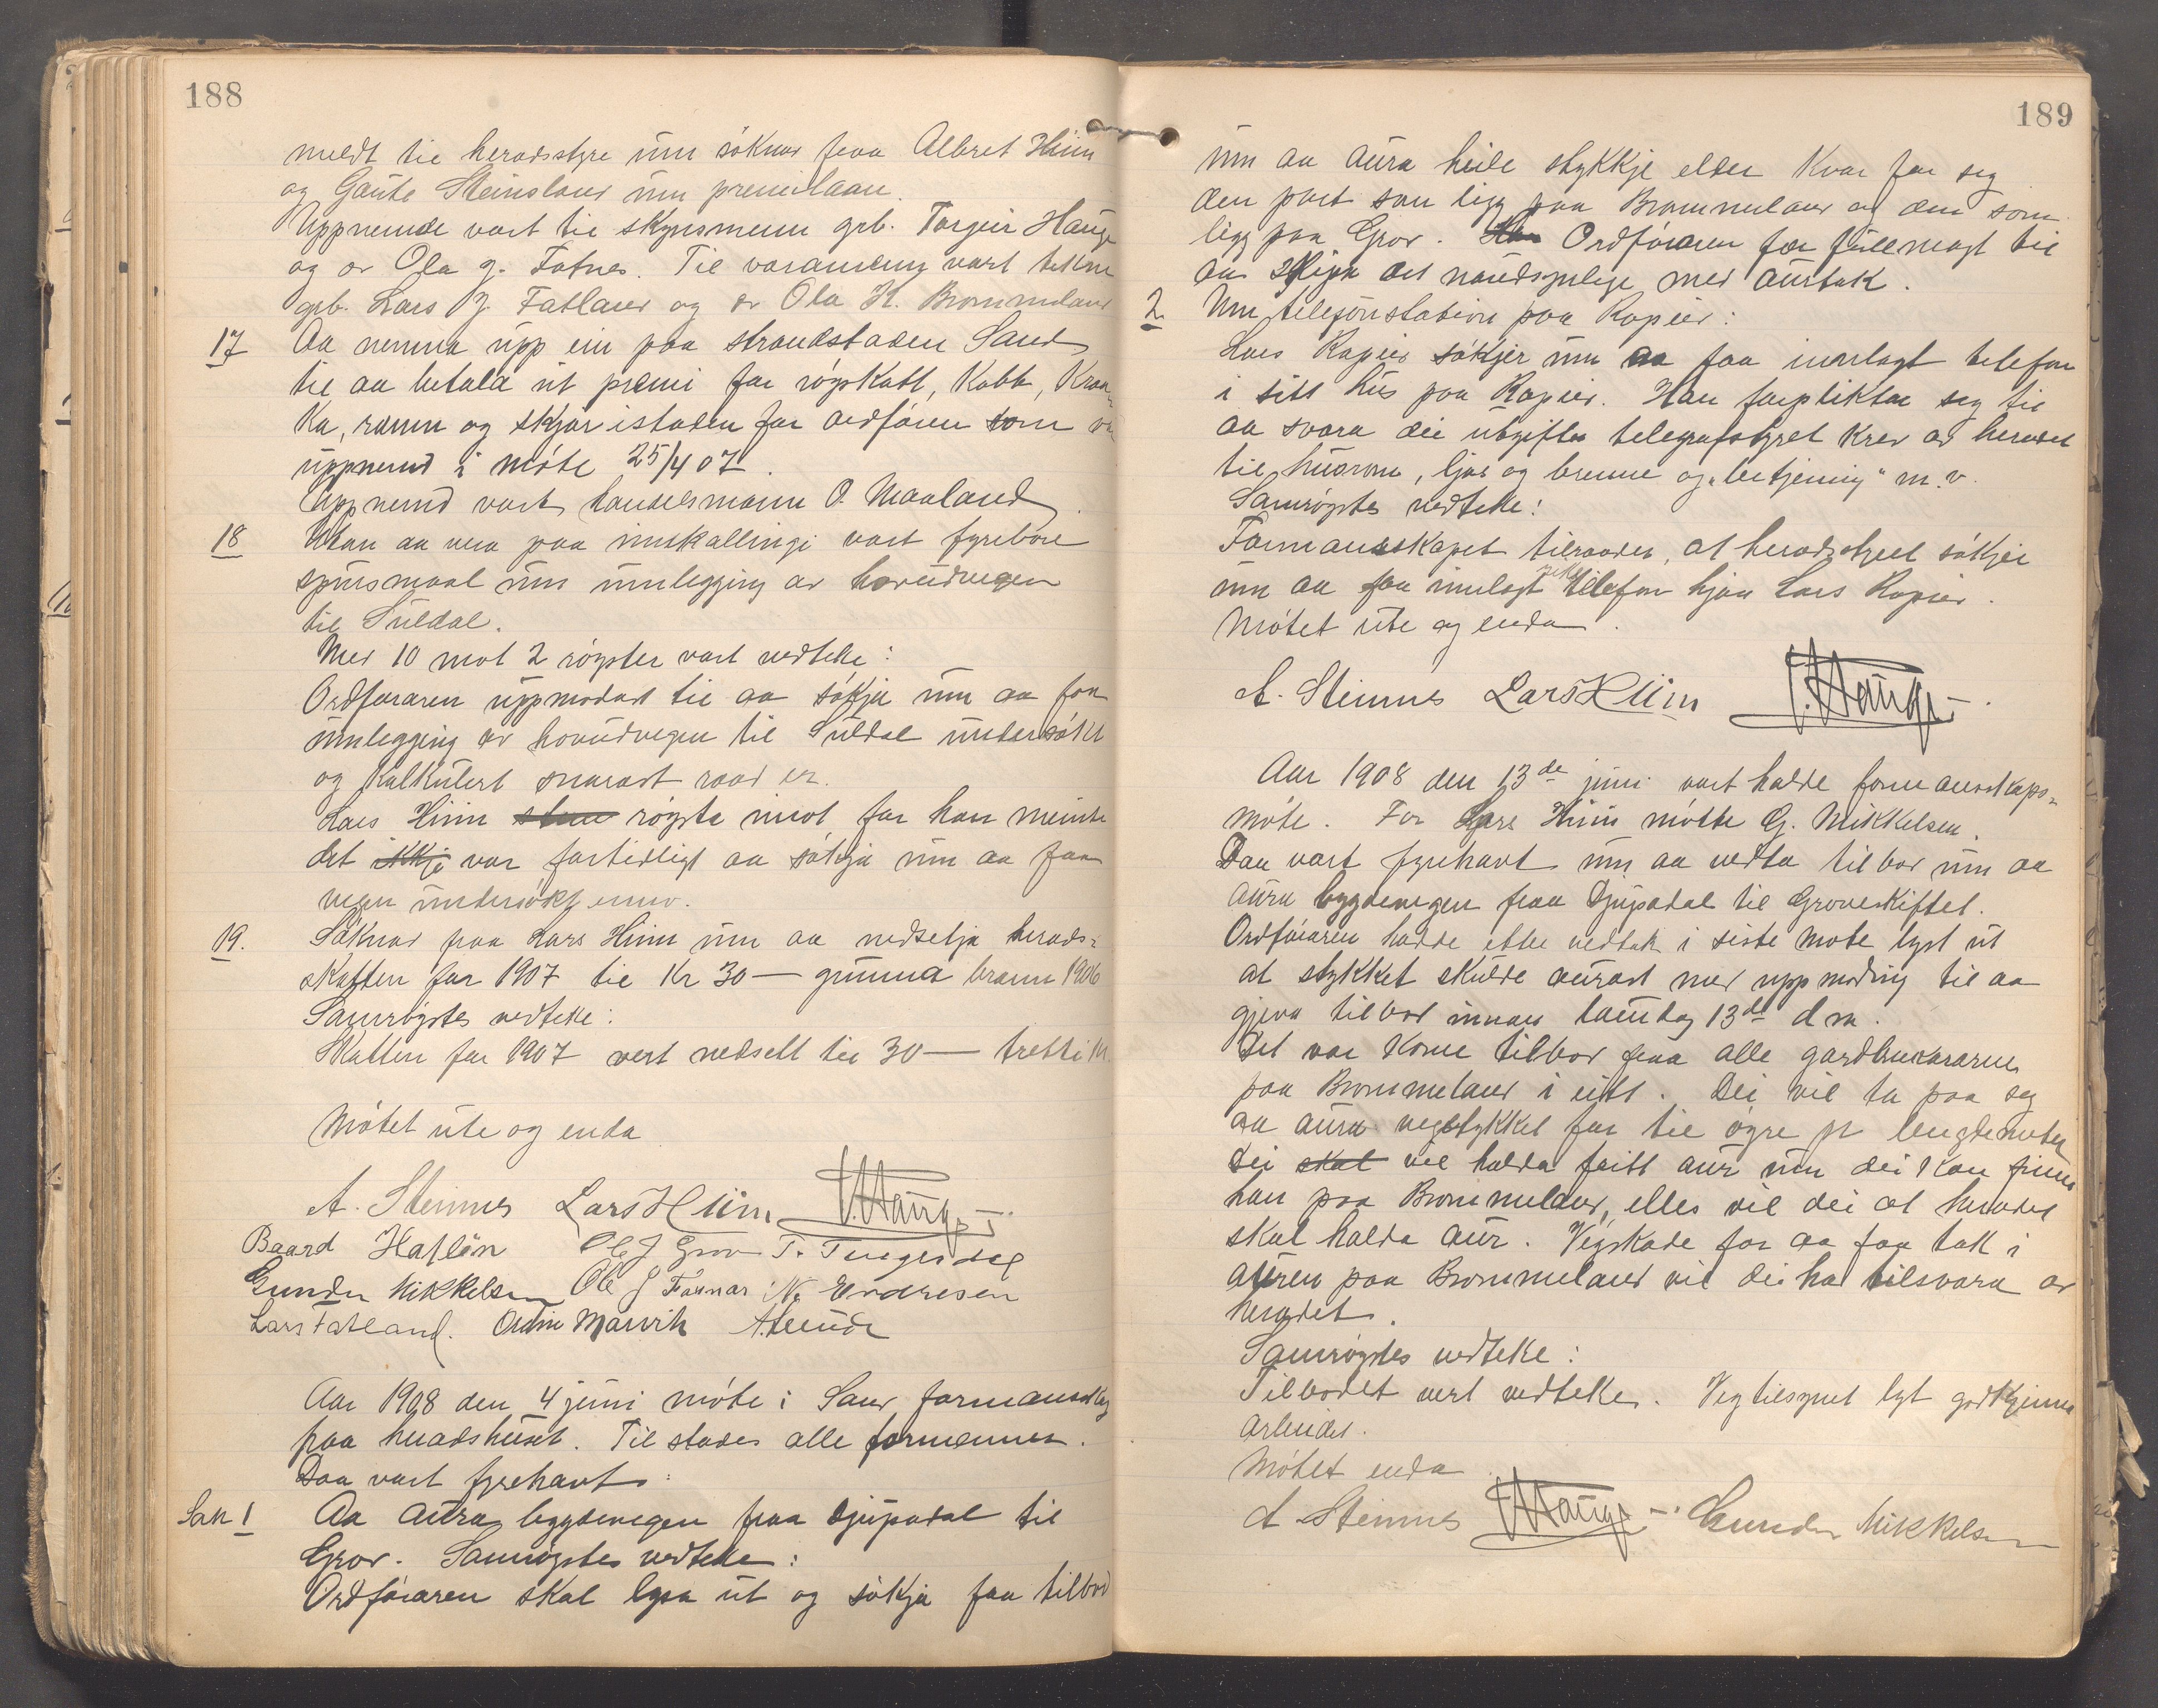 188
meldt til heradsstyre um söknad fraa Albret Hiim
og Gaute Steinsland um premilaan.
Uppnemde vart til skynsmenn grb. Torgeir Hauge
og av Ola G. Fatnes. Til varamenn vart tekne
grb. Lars J. Fatland og av Ola K. Brommeland
17 Aa nemna upp ein paa strandstaden Sand
til aa betala ut premi for röyskatt, Kobb, Kraa-
ka, ramn og skjor istaden for ordföraren som var
uppnemd i möte 25/4 07.
Uppnemd vart handelsmann O. Maaland.
18 Utan aa vera paa innkallingi vart fyrebore
spursmaal um umlegging av hovudvegen
til Suldal.
Med 10 mot 2 röyster vart vedteke:
Ordföraren uppmodast til aa sökja um aa faa
umlegging av hovudvegen til Suldal undersökt
og kalkulert snarast raad er.
Lars Hiim röysta imot for han meinte
det ikkje var fortidligt aa sökja um aa faa
vegen undersökt enno.
19. Söknad paa Lars Hiim um aa nedsetja herads-
skatten for 1907 til Kr 30— grunna brann 1906
Samröystes vedteke:
Skatten for 1907 vert nedsett til 30— tretti kr.
Mötet ute og enda
A. Steinnes Lars Hiim T. Hauge
Baard Hatlön Ole J Grov T. Tengesdal
Gunder Mikkelsen Ole J Foknar N. Endresen
Lars Fatland. Odin Marvik
Aar 1908 den 4 juni möte i Sand formannskap
paa heradshuset. Til stades alle formennene.
Daa vart fyrehavt:
Sak 1 Aa aura bygdevegen fraa Djupadal til
Grov. Samröystes vedteke:
Ordföraren skal lysa ut og sökja faa tilbod
189
um aa aura heile stykkje elder kvar for seg
den part som ligg paa Brommeland og den som
ligg paa Grov. Ordföraren fær fullmagt til
aa skipa det naudsynlege med aurtak.
2. Um telefonstation paa Ropeid:
Lars Ropeid sökjer um aa faa innlagt telefon
i sitt hus paa Ropeid. Han forpliktar seg til
aa svara dei utgifter telegrafstyret krev av heradet
til husrom, ljos og brenne og "betjening" m.v.
Samröystes vedteke:
Formannskapet tilraader, at heradsstyret sökjer
um aa faa innlagt telefon hjaa Lars Ropeid.
Mötet ute og enda.
A. Steinnes Lars Hiim T. Hauge
Aar 1908 den 13de juni vart halde formannskaps-
möte. For Lars Hiim mötte G. Mikkelsen.
Daa vart fyrehavt um aa vedta tilbod um aa
aura bygdevegen fraa Djupadal til Groveskiftet.
Ordföraren hadde etter vedtak i siste möte lyst ut
at stykket skulde aurast med uppmoding til aa
gjeva tilbod innan laurdag 13de d m.
Det var kome tilbod fraa alle gardbrukararne
paa Brommeland i eitt. Dei vil ta paa seg
aa aura vegstykket for ti öyre pr lengdemeter
Dei skal vil halda fritt aur um dei kan finna
han paa Brommeland, elles vil dei at heradet
skal halda aur. Vegskade for aa faa tak i
auren paa Brommeland vil dei ha tilsvara av
heradet.
Samröystes vedteke:
Tilbodet vert vedteke. Vegtilsynet lyt godkjenna
arbeidet.
Mötet enda.
A Steinnes T. Hauge Gunder Mikkelsen